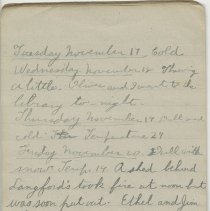 Tuesday November 17. Cold.
Wednesday November 18 Thawing
a little. Olive and I went to the
library to-night.
Thursday November 19 Dull and
cold. Temperature 29
Friday November 20. Dull with
snow. Temp. 14 A shed behind
Langford's took fire at noon but
was soon put out. Ethel and Jim